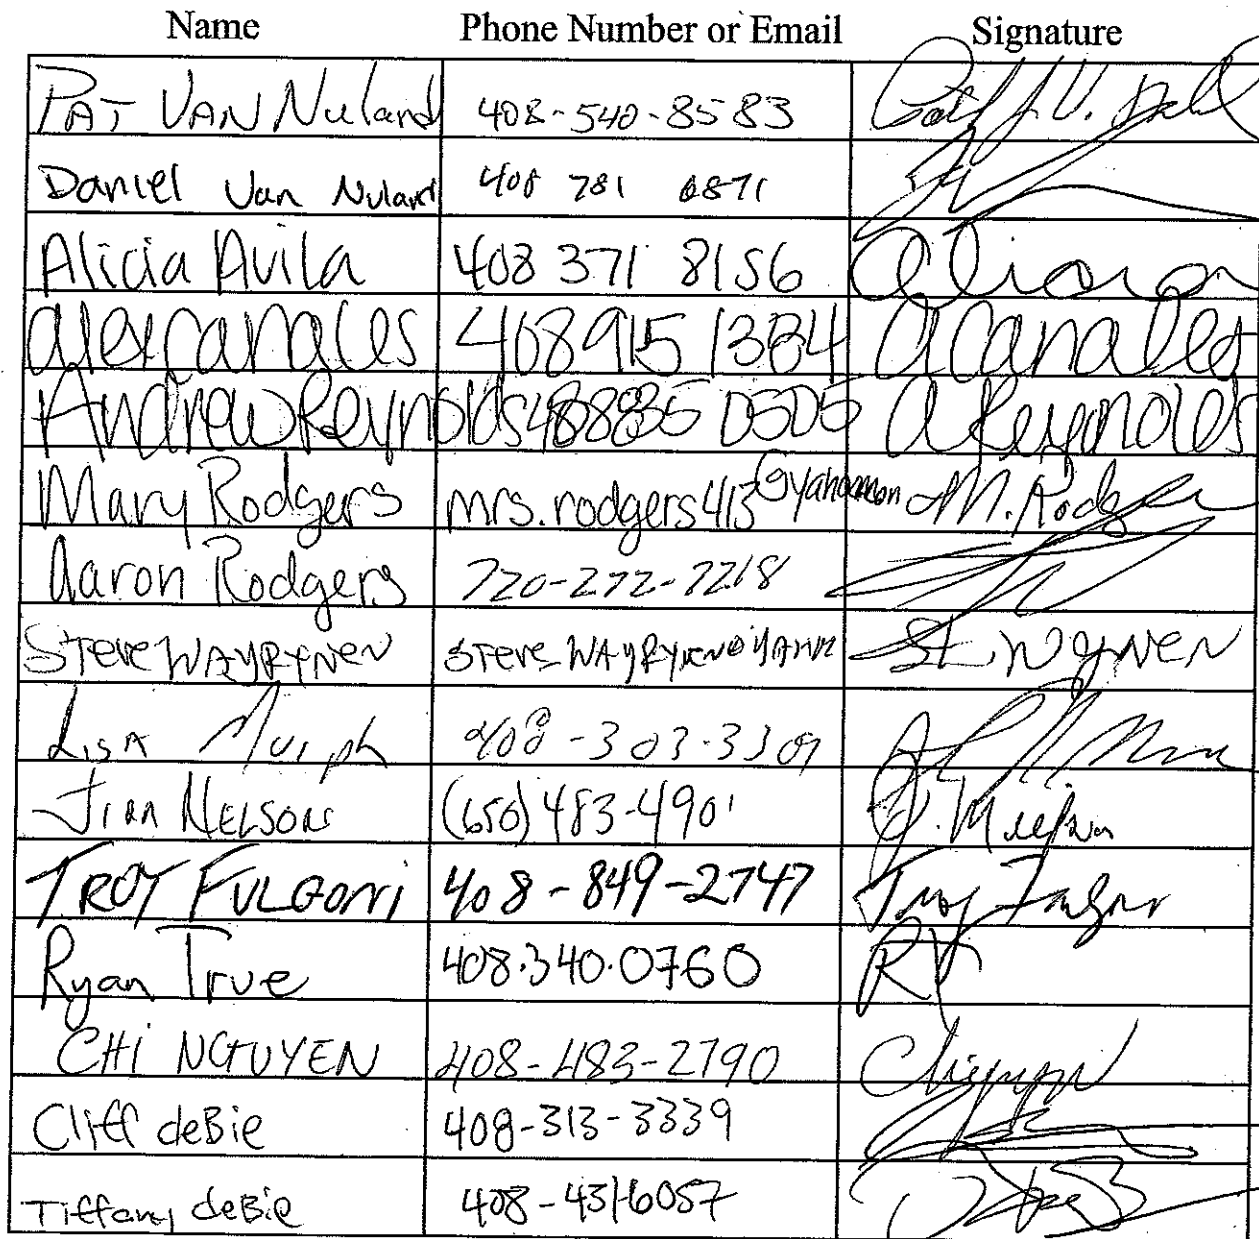 Name Phone Number or Email Signature
PAT VAN Nuland 408-540-8583
Daniel Van Nuland 408 781 0871
Alicia Avila 408 371 8156 Alicia
alexcanales 408 915 1334 a canales
Andrew Reynolds 408835 0505 a Reynolds
Mary Rodgers mrs.rodgers413@yahoo.com M. Rodgers
Aaron Rodgers 720-272-7218
STEVE WAYRYNEN STEVE WAYRYNEN@YAHOO
LISA Murph 408-303-3309
Jim NELSON (650) 483-4901
TROY FULGONI 408-849-2747 Troy
Ryan True 408.340.0760 RT
CHI NGUYEN 408-483-2790
Cliff deBie 408-313-3339
Tiffany deBie 408-431-6057